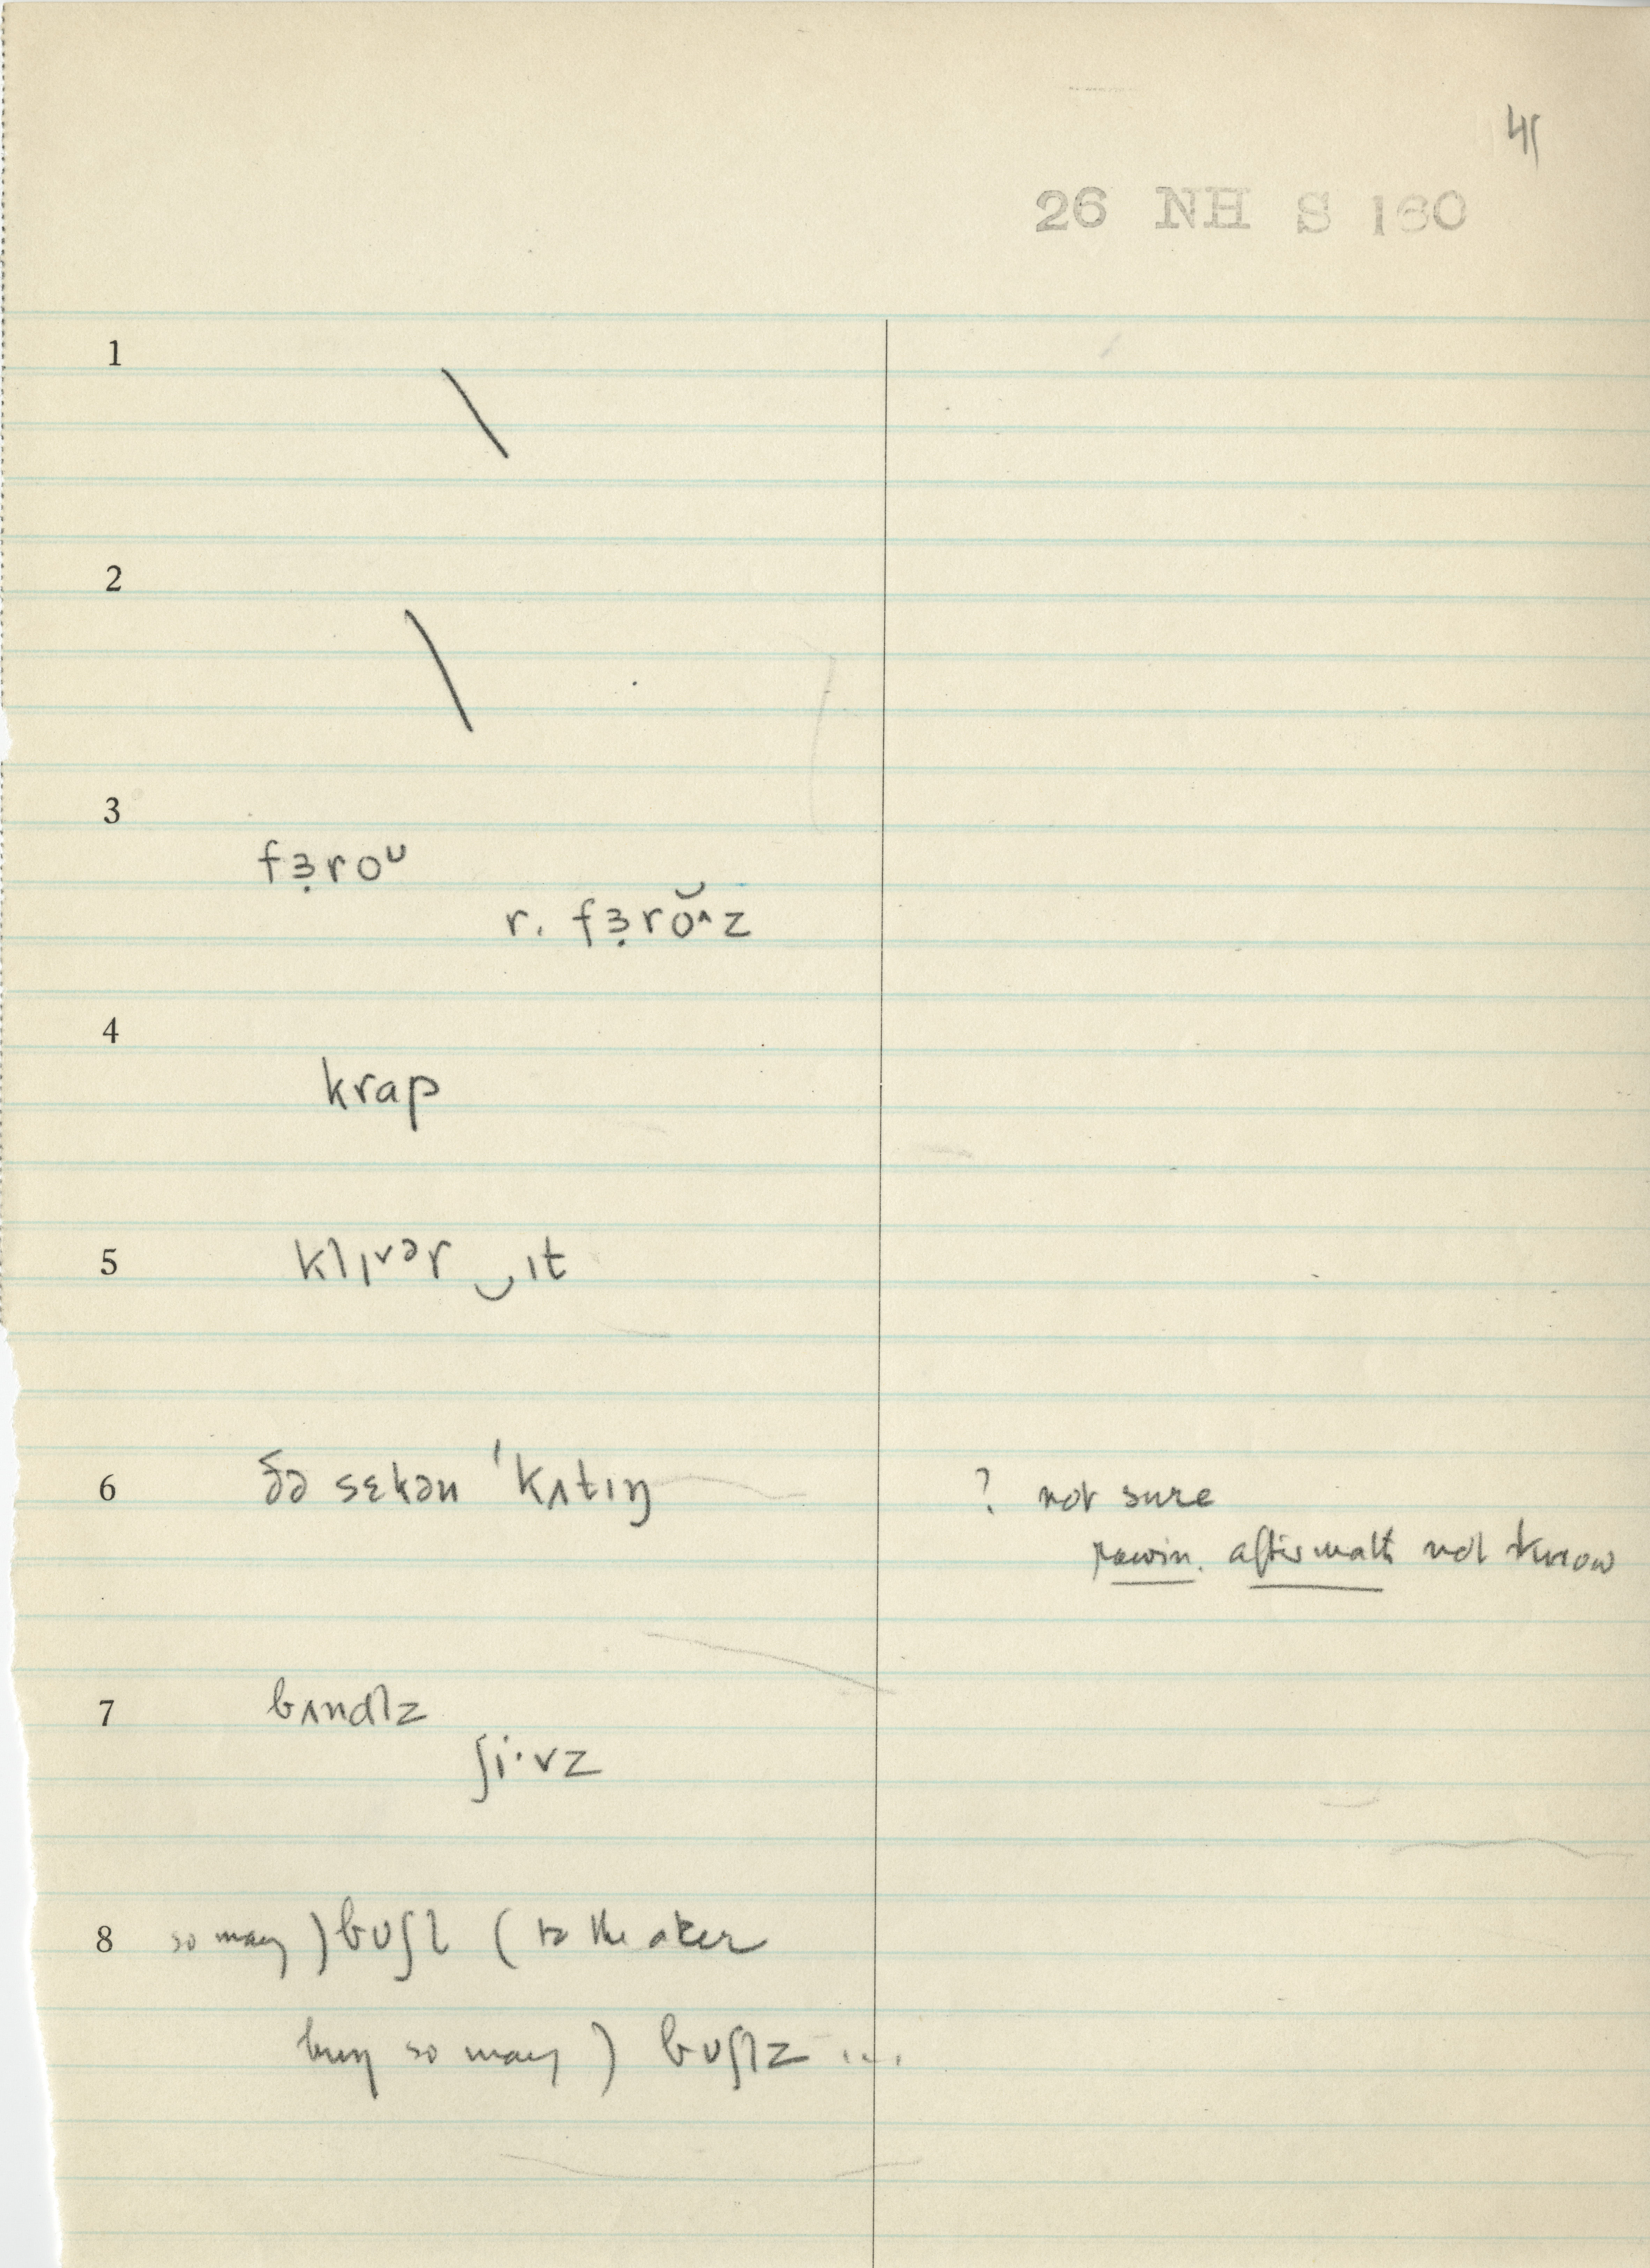 41
26 NH S 160
1
\
2
\
3
fɜ̣roᴜ
r. fɜ̣rŏ^z
4
krap
5
klɪvər ‿ ɪt
6 ðə sɛkən ˈkʌtɪŋ ? not sure
rowin. aftermath not know
7 bʌndlz
ʃi·vz
8 so many ) bᴜʃl ( to the aker
buy so many ) bᴜʃlz ...